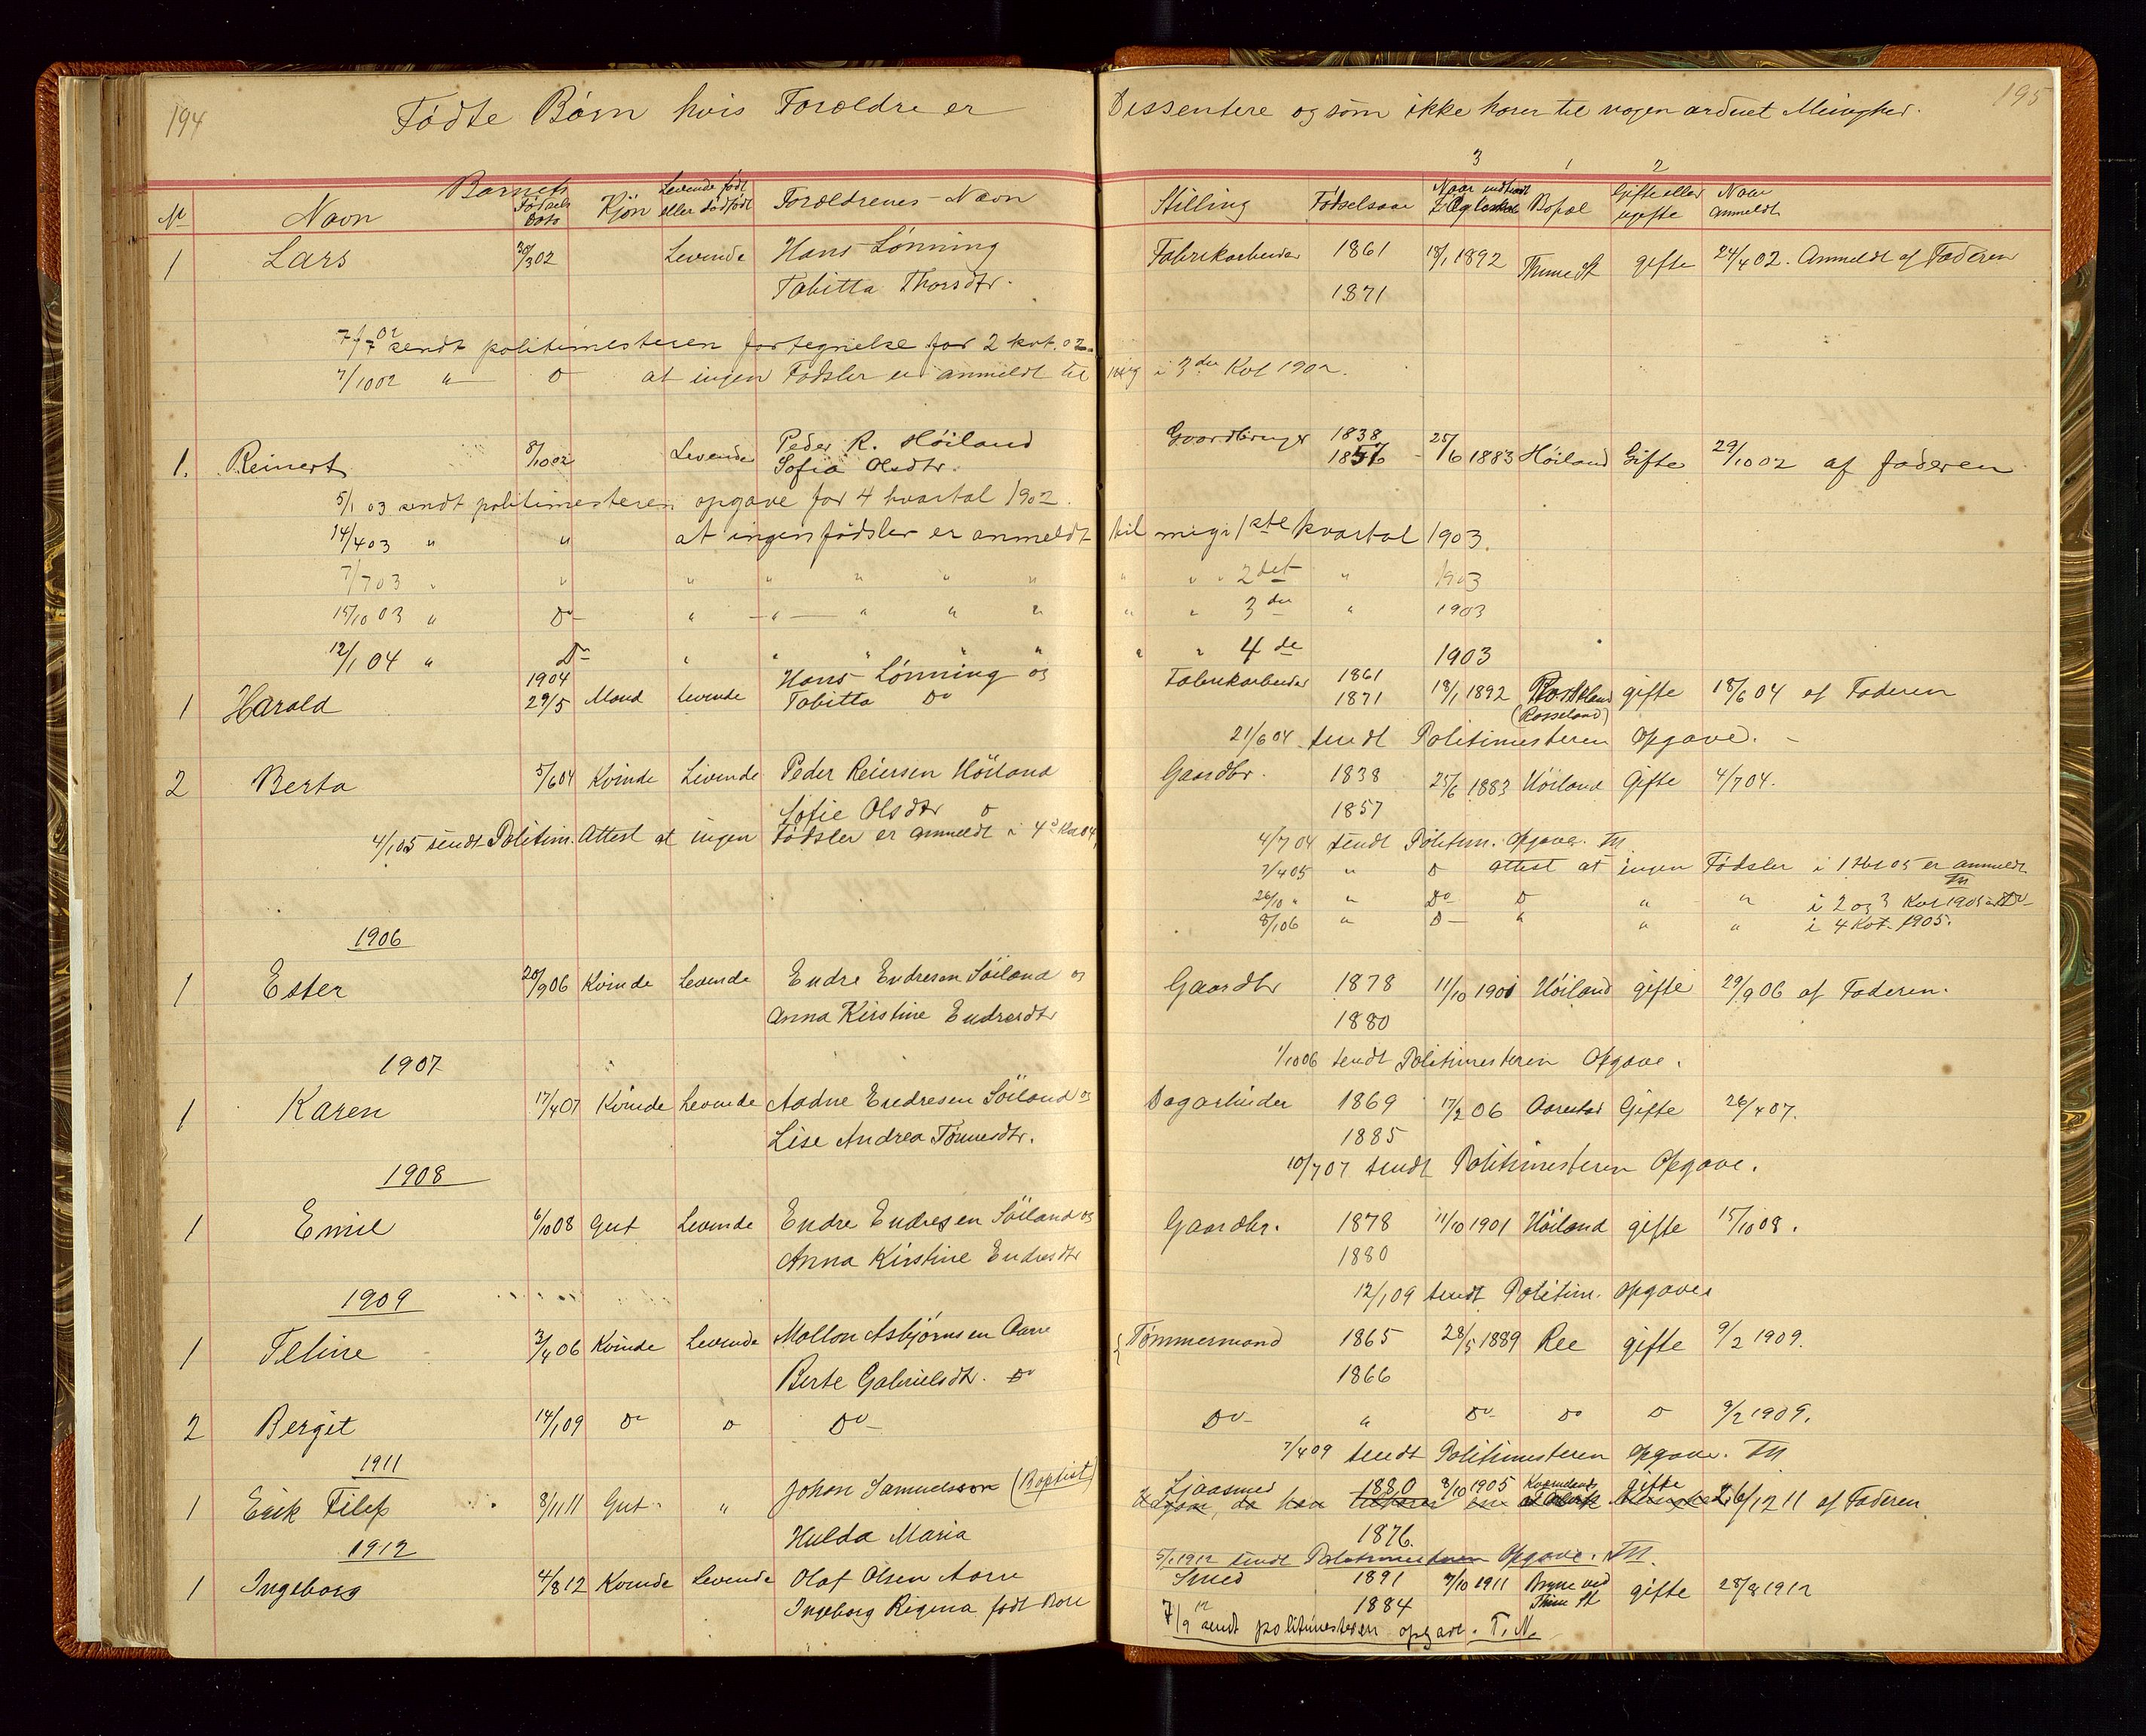 194
Fødte Børn hvis Forældre er Dissentere og som ikke hører til nogen ordnet Menighed.
195
3 1 2
Barnets
№ Navn Fødsels Dato Kjøn Levende født eller dødfødt Forældrenes Navn Stilling Fødselsaar Naar indtraadt i Ægteskab Bopæl Gifte eller ugifte Naar anmeldt
1 Lars 30/3 02 Levende Hans Lønning Fabrikarbeider 1861 18/1 1892 Thime St gifte 24/4 02. Anmeldt af Faderen
Tabitta Thorsdtr. 1871
7/7 02 sendt politimesteren fortegnelse for 2 kvt. 02.
7/10 02 " D at ingen Fødsler er anmeldt til mig i 3die Kvt 1902.
1. Reinert 8/10 02 Levende Peder R. Høiland Gaardbruger 1838 25/6 1883 Høiland Gifte 29/10 02 af faderen
Sofia Olsdtr. 1857
5/1 03 sendt politimesteren opgave for 4 kvartal 1902.
14/4 03 " " at ingen fødsler er anmeldt til mig i 1ste kvartal 1903.
7/7 03 " " " " " " " " " " 2det " 1903
15/10 03 " Do " " " " " " " 3die " 1903
12/1 04 " Do " " " " " " " 4de 1903
1904
1 Harald 29/5 Mand levende Hans Lønning og Fabrikarbeider 1861 18/1 1892 Rosseland gifte 18/6 04 af Faderen
Tabitta Do 1871 (Rosseland)
21/6 04 sendt Politimesteren Opgave.
2 Berta 5/6 04 Kvinde Levende Peder Reiersen Höiland Gaardbr. 1838 25/6 1883 Höiland Gifte 4/7 04.
Sofie Olsdtr D 1857
4/1 05 sendt Politim. Attest at ingen Fødsler er anmeldt i 4de Kvt 04, 4/7 04 sendt Politim. Opgave. TN
7/4 05 " D attest at ingen Fødsler i 1 Kvt 05 er anmeldt TN
26/10 " " Do D " " i 2 og 3 Kvt 1905 Do
8/1 06 " D " " " i 4 Kvt. 1905.
1906
1 Ester 20/9 06 Kvinde Levende Endre Endresen Söiland og Gaardbr 1878 11/10 1901 Höiland gifte 29/9 06 af Faderen.
Anna Kirstine Endresdtr 1880
1/10 06 sendt Politimesteren Opgave.
1907
1 Karen 17/4 07 Kvinde Levende Aadne Endresen Söiland og Dagarbeider 1869 17/2 06 Aarestad Gifte 26/4 07.
Lise Andrea Tönnesdtr. 1885
10/7 07 sendt Politimesteren Opgave.
1908
1 Emil 6/10 08 Gut Levende Endre Endresen Söiland og Gaardbr. 1878 11/10 1901 Höiland gifte 15/10 08.
Anna Kirstine Endresdtr 1880
12/1 09 sendt Politim. Opgave
1909
1 Teline 3/4 06 Kvinde Levende Mallon Asbjørnsen Aarre Tömmermand 1865 28/5 1889 Ree gifte 9/2 1909.
Berte Gabrielsdt. Do 1866
2 Bergit 14/1 09 Do D Do Do " Do Do D 9/2 1909.
7/4 09 sendt Politimesteren Opgave. TN
1911
1 Erik Filip 8/11 11 Gut " Johan Samuelsson (Baptist) 1880 3/10 1905 gifte 26/12 11 af Faderen.
Hulda Maria 1876.
1912 5/1 1912 sendt Politimesteren Opgave. TN.
1 Ingeborg 4/8 12 Kvinde Levende Olaf Olsen Aarre Smed 1891 7/10 1911 Bryne ved Thime St gifte 28/8 1912
Ingeborg Regina født Bore 1884
7/9 12 sendt politimesteren opgave. T. N.